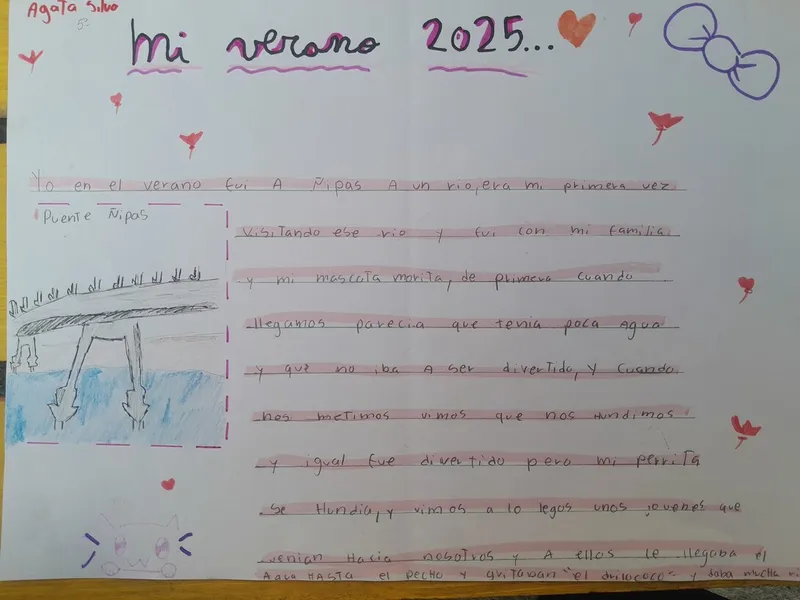 Agata Silva
5°
Mi verano 2025...
Yo en el verano fui A Ñipas A un rio, era mi primera vez
Puente Ñipas
visitando ese rio y fui con mi familia
y mi mascota morita, de primera cuando
llegamos parecia que tenia poca Agua
y que no iba A ser divertido, y cuando
nos metimos vimos que nos Hundimos
y igual fue divertido pero mi perrita
se Hundia, y vimos a lo legos unos jovenes que
venian Hacia nosotros y A ellos le llegaba el
Agua HASTA el pecho y gritavan "el" y daba mucha